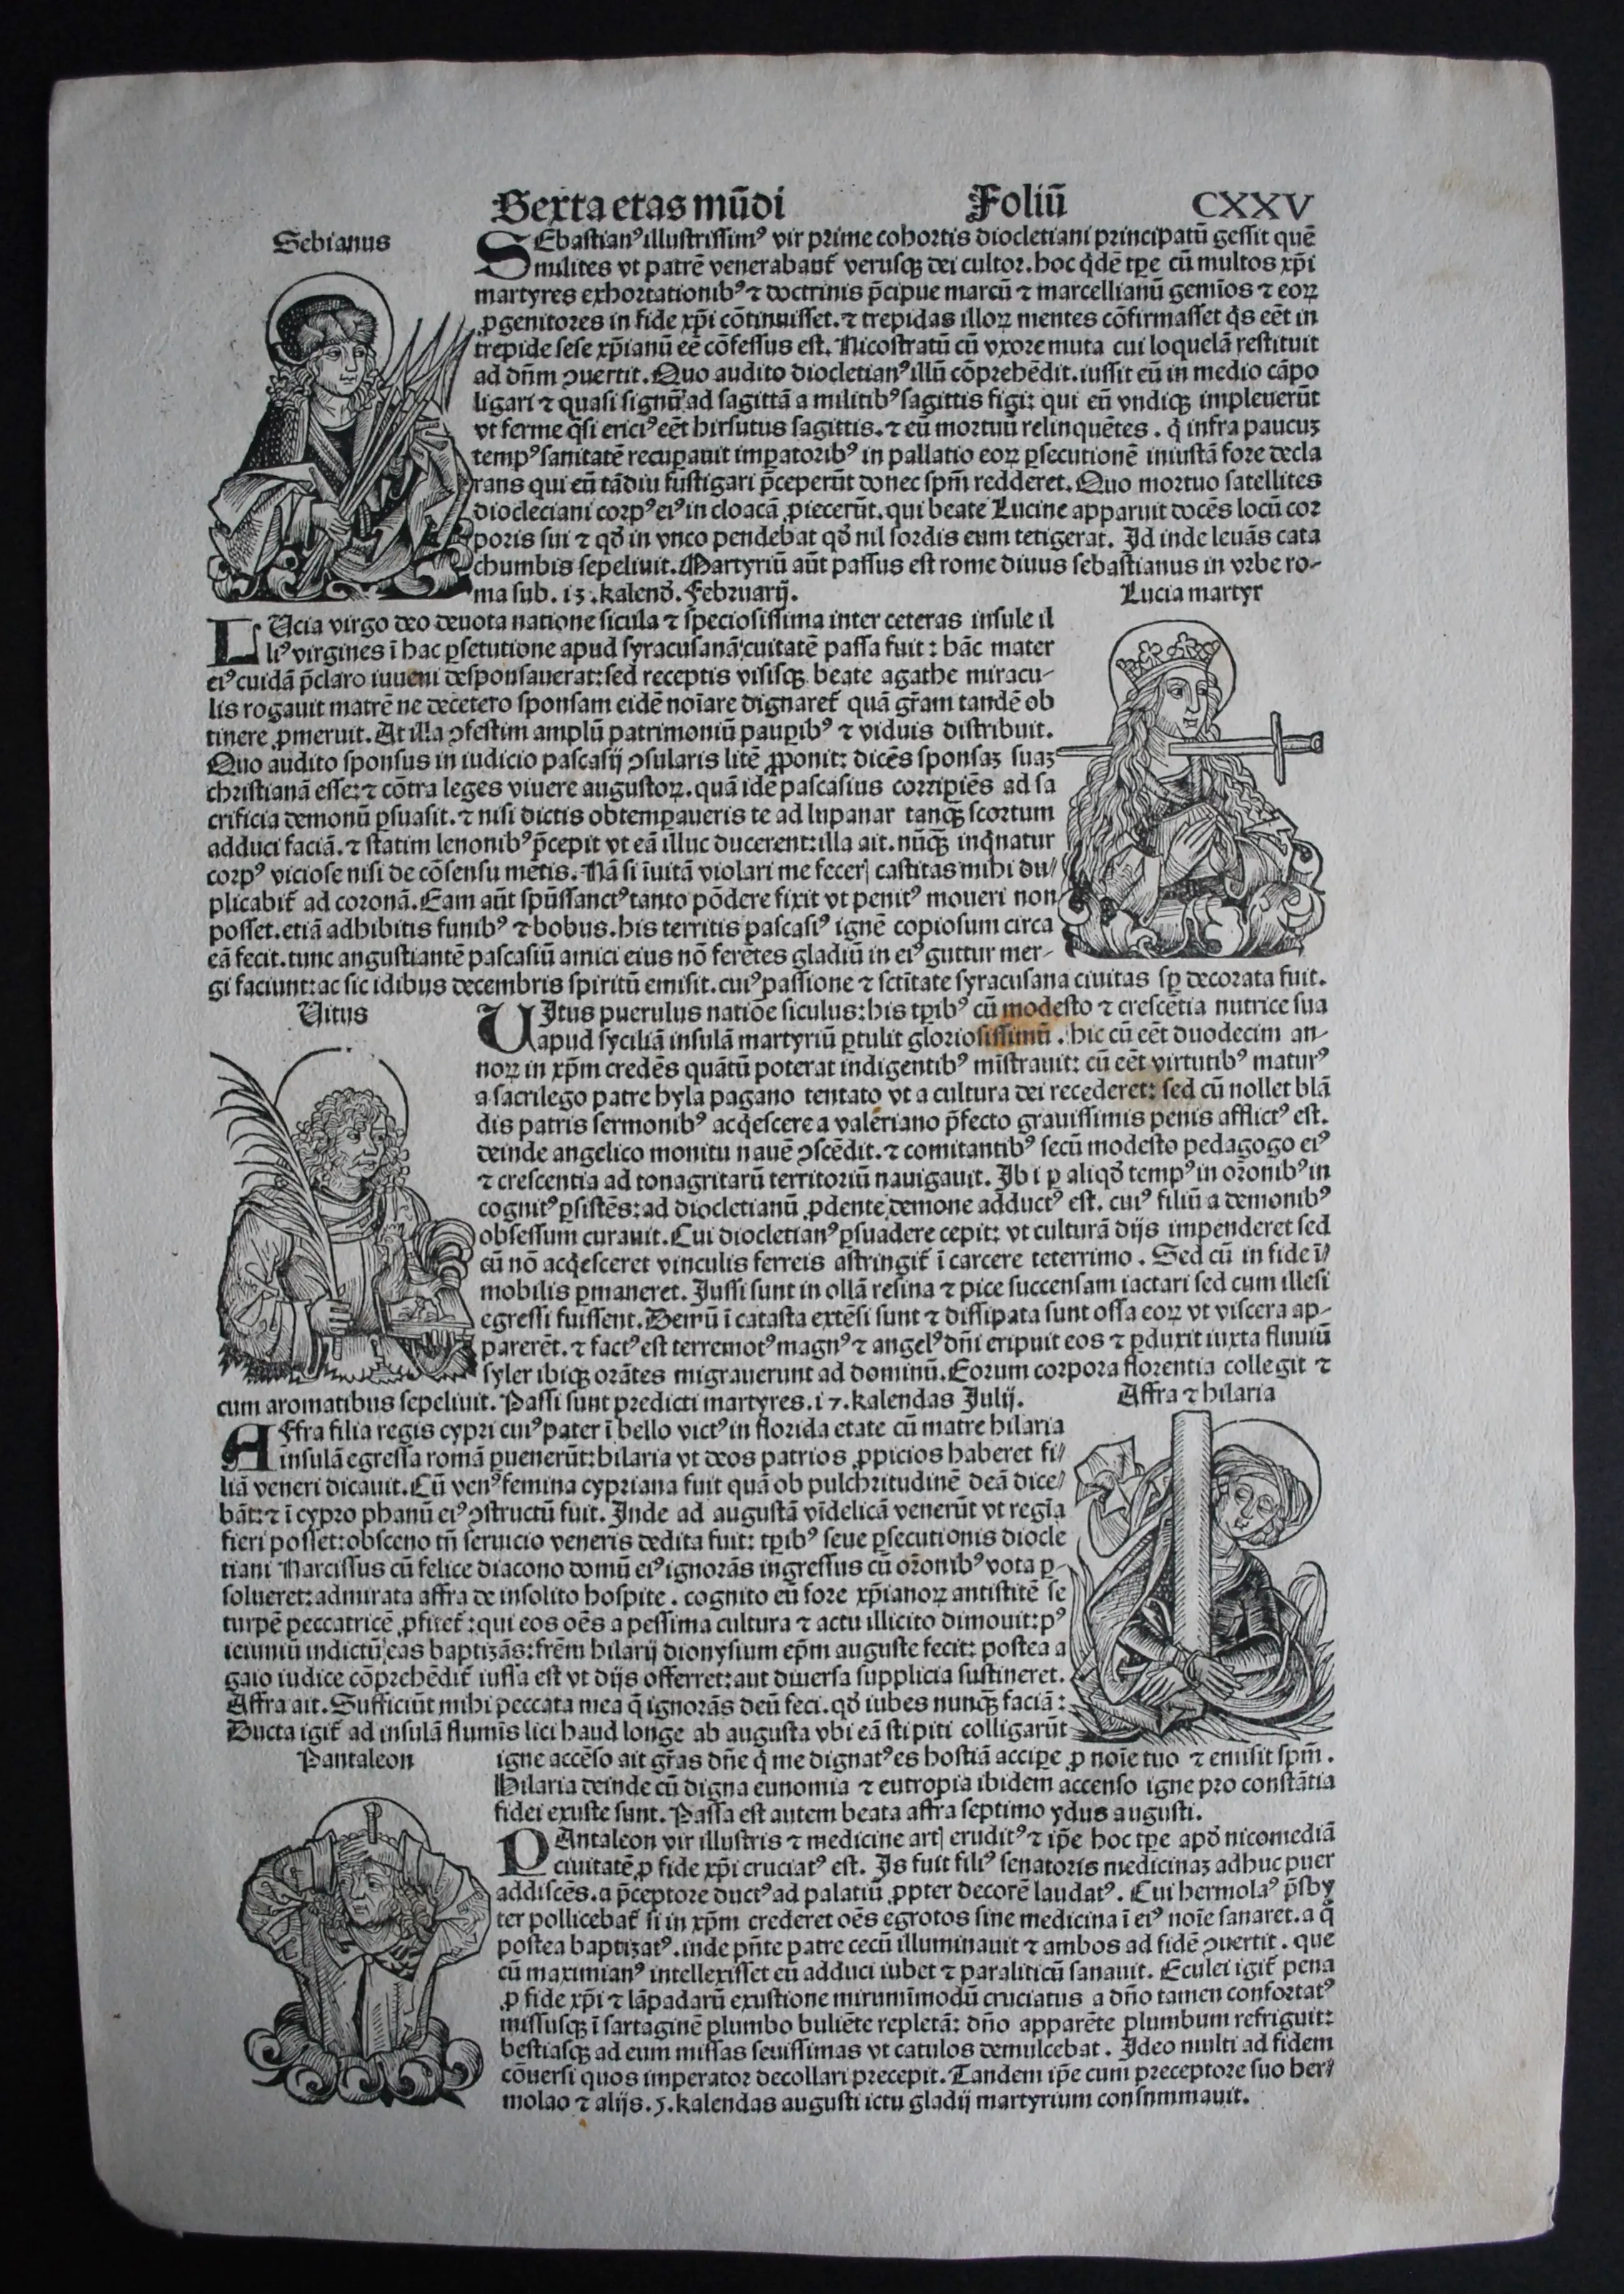 Sexta etas mūdi Foliū CXXV
Sebianus
SEbastianꝰ illustrissimꝰ vir prime cohortis diocletiani principatū gessit quē
milites vt patrē venerabant᷑ verusqꝫ dei cultor. hoc q̄dē tꝑe cū multos xp̄i
martyres exhortationibꝰ ⁊ doctrinis p̄cipue marcū ⁊ marcellianū gemīos ⁊ eoꝝ
ꝓgenitores in fide xp̄i cōtinuisset. ⁊ trepidas illoꝝ mentes cōfirmasset q̄s eēt in
trepide sese xp̄ianū eē cōfessus est. Nicostratū cū vxore muta cui loquelā restituit
ad dn̄m ↄuertit. Quo audito diocletianꝰ illū cōprehēdit. iussit eū in medio cāpo
ligari ⁊ quasi signū ad sagittā a militibꝰ sagittis figi: qui eū vndiqꝫ impleuerūt
vt ferme q̄si ericiꝰ eēt hirsutus sagittis. ⁊ eū mortuū relinquētes. q̄ infra paucuꝫ
tempꝰ sanitatē recuꝑauit imꝑatoribꝰ in pallatio eoꝝ ꝑsecutionē iniustā fore decla
rans qui eū tādiu fustigari p̄ceperūt donec spm̄ redderet. Quo mortuo satellites
diocleciani corpꝰ eiꝰ in cloacā ꝓiecerūt. qui beate Lucine apparuit docēs locū cor
poris sui ⁊ qđ in vnco pendebat qđ nil sordis eum tetigerat. Id inde leuās cata
chumbis sepeliuit. Martyriū aūt passus est rome diuus sebastianus in vrbe ro-
ma sub. 13. kalend̄. februarij.
Lucia martyr
LUcia virgo deo deuota natione sicula ⁊ speciosissima inter ceteras insule il
liꝰ virgines ī hac ꝑsetutione apud syracusanā cuitatē passa fuit: hāc mater
eiꝰ cuidā p̄claro iuueni desponsauerat: sed receptis visisqꝫ beate agathe miracu-
lis rogauit matrē ne decetero sponsam eidē noīare dignaret᷑ quā gr̄am tandē ob
tinere ꝓmeruit. At illa ↄfestim amplū patrimoniū pauꝑibꝰ ⁊ viduis distribuit.
Quo audito sponsus in iudicio pascasij ↄsularis litē ꝓponit: dicēs sponsaꝫ suaꝫ
christianā esse: ⁊ cōtra leges viuere augustoꝝ. quā idē pascasius corripiēs ad sa
crificia demonū ꝑsuasit. ⁊ nisi dictis obtemꝑaueris te ad lupanar tanqꝫ scortum
adduci faciā. ⁊ statim lenonibꝰ p̄cepit vt eā illuc ducerent: illa ait. nūqꝫ inq̄natur
corpꝰ viciose nisi de cōsensu mētis. Nā si īuitā violari me feceris castitas mihi du⸗
plicabit᷑ ad coronā. Eam aūt spūssanctꝰ tanto pōdere fixit vt penitꝰ moueri non
posset. etiā adhibitis funibꝰ ⁊ bobus. his territis pascasiꝰ ignē copiosum circa
eā fecit. tunc angustiantē pascasiū amici eius nō ferētes gladiū in eiꝰ guttur mer-
gi faciunt: ac sic idibus decembris spiritū emisit. cuiꝰ passione ⁊ sctītate syracusana ciuitas sꝑ decorata fuit.
Vitus
UItus puerulus natiōe siculus: his tꝑibꝰ cū modesto ⁊ crescētia nutrice sua
apud syciliā insulā martyriū ꝑtulit gloriosissimū. hic cū eēt duodecim an-
noꝝ in xp̄m credēs quātū poterat indigentibꝰ mīstrauit: cū eēt virtutibꝰ maturꝰ
a sacrilego patre hyla pagano tentato vt a cultura dei recederet: sed cū nollet blā
dis patris sermonibꝰ acq̄escere a valeriano p̄fecto grauissimis penis afflictꝰ est.
deinde angelico monitu nauē ↄscēdit. ⁊ comitantibꝰ secū modesto pedagogo eiꝰ
⁊ crescentia ad tonagritarū territoriū nauigauit. Ibi ꝑ aliqđ tempꝰ in or̄onibꝰ in
cognitꝰ ꝑsistēs: ad diocletianū ꝓdente demone adductꝰ est. cuiꝰ filiū a demonibꝰ
obsessum curauit. Cui diocletianꝰ ꝑsuadere cepit: vt culturā dijs impenderet sed
cū nō acq̄esceret vinculis ferreis astringit᷑ ī carcere teterrimo. Sed cū in fide ī⸗
mobilis ꝑmaneret. Iussi sunt in ollā resina ⁊ pice succensam iactari sed cum illesi
egressi fuissent. Demū ī catasta extēsi sunt ⁊ dissipata sunt ossa eoꝝ vt viscera ap-
parerēt. ⁊ factꝰ est terremotꝰ magnꝰ ⁊ angelꝰ dn̄i eripuit eos ⁊ ꝑduxit iuxta fluuiū
syler ibiqꝫ orātes migrauerunt ad dominū. Eorum corpora florentia collegit ⁊
cum aromatibus sepeliuit. Passi sunt predicti martyres. 17. kalendas Julij.
Affra ⁊ hilaria
AFfra filia regis cypri cuiꝰ pater ī bello victꝰ in florida etate cū matre hilaria
insulā egressa romā ꝑuenerūt: hilaria vt deos patrios ꝓpicios haberet fi⸗
liā veneri dicauit. Cū venꝰ femina cypriana fuit quā ob pulchritudinē deā dice⸗
bāt: ⁊ ī cypro phanū eiꝰ ↄstructū fuit. Inde ad augustā vīdelicā venerūt vt regīa
fieri posset: obsceno tn̄ seruicio veneris dedita fuit: tꝑibꝰ seue ꝑsecutionis diocle
tiani Narcissus cū felice diacono domū eiꝰ ignorās ingressus cū or̄onibꝰ vota ꝑ-
solueret: admirata affra de insolito hospite. cognito eū fore xp̄ianoꝝ antistitē se
turpē peccatricē ꝓfitet᷑: qui eos oēs a pessima cultura ⁊ actu illicito dimouit: pꝰ
ieiuniū indictū eas baptizās: frēm hilarij dionysium ep̄m auguste fecit: postea a
gaio iudice cōprehēdit᷑ iussa est vt dijs offerret: aut diuersa supplicia sustineret.
Affra ait. Sufficiūt mihi peccata mea q̄ ignorās deū feci. qđ iubes nunqꝫ faciā:
Ducta igit᷑ ad insulā flumīs lici haud longe ab augusta vbi eā stipiti colligarūt
igne accēso ait gr̄as dn̄e q̄ me dignatꝰ es hostiā acciꝑe ꝓ noīe tuo ⁊ emisit spm̄.
Hilaria deinde cū digna eunomia ⁊ eutropia ibidem accenso igne pro constātia
fidei exuste sunt. Passa est autem beata affra septimo ydus augusti.
Pantaleon
PAntaleon vir illustris ⁊ medicine artis eruditꝰ ⁊ ip̄e hoc tꝑe apđ nicomediā
ciuitatē ꝓ fide xp̄i cruciatꝰ est. Is fuit filiꝰ senatoris medicinaꝫ adhuc puer
addiscēs. a p̄ceptore ductꝰ ad palatiū ꝓpter decorē laudatꝰ. Cui hermolaꝰ p̄sby
ter pollicebat᷑ si in xp̄m crederet oēs egrotos sine medicina ī eiꝰ noīe sanaret. a q̄
postea baptizatꝰ. inde pn̄te patre cecū illuminauit ⁊ ambos ad fidē ↄuertit. que
cū maximianꝰ intellexisset eū adduci iubet ⁊ paraliticū sanauit. Eculei igit᷑ pena
ꝓ fide xp̄i ⁊ lāpadarū exustione mirumīmodū cruciatus a dn̄o tamen confortatꝰ
missusqꝫ ī sartaginē plumbo buliēte repletā: dn̄o apparēte plumbum refriguit:
bestiasqꝫ ad eum missas seuissimas vt catulos demulcebat. Ideo multi ad fidem
cōuersi quos imperator decollari precepit. Tandem ip̄e cum preceptore suo her⸗
molao ⁊ alijs. 5. kalendas augusti ictu gladij martyrium consnmmauit.